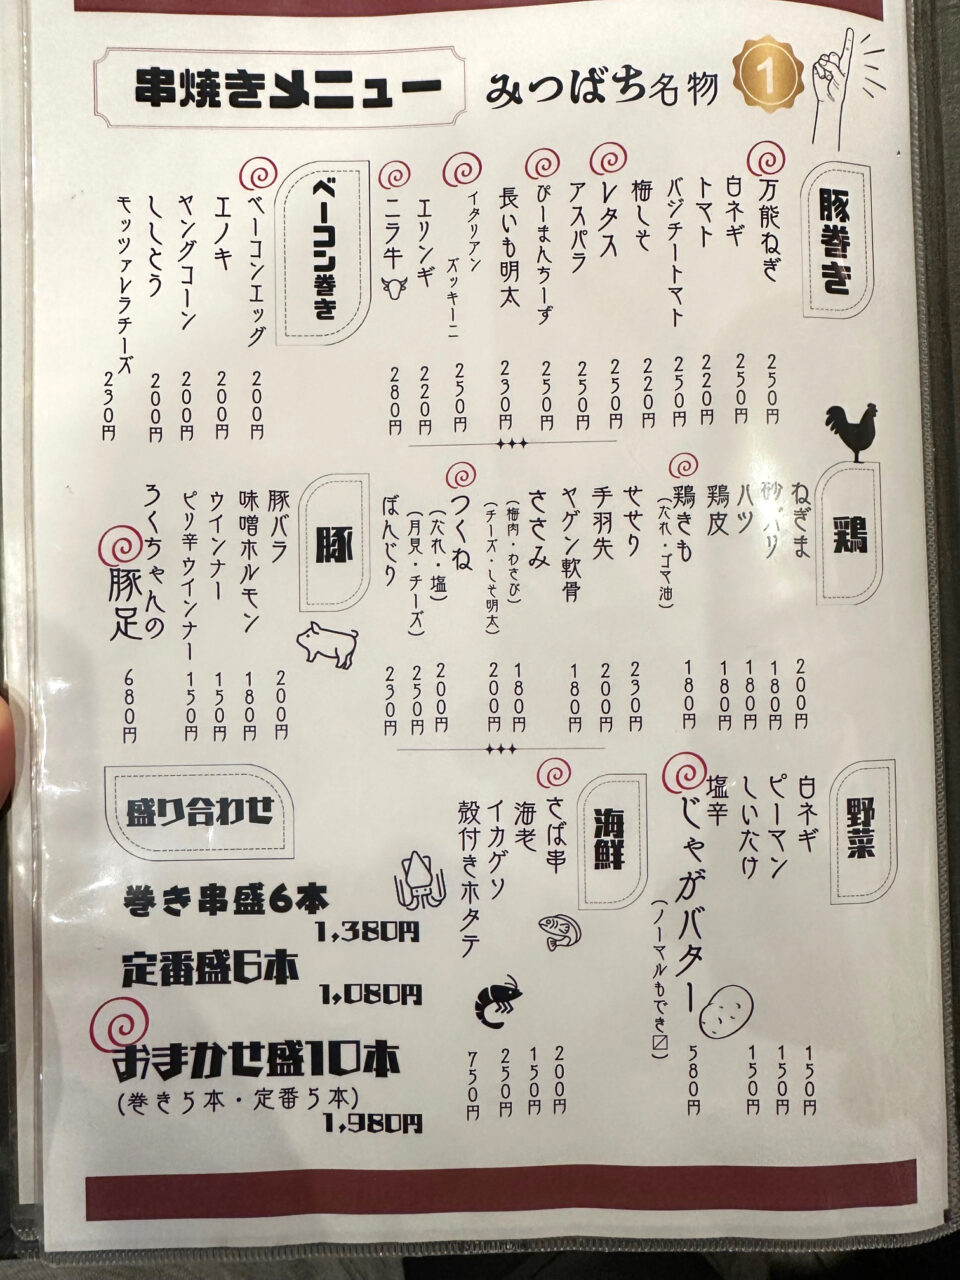 串焼きメニュー
みつばち名物
1
豚巻き
万能ねぎ 250円
白ネギ 250円
トマト 220円
バジチートマト 250円
梅しそ 220円
レタス 250円
アスパラ 250円
ぴーまんちーず 250円
長いも明太 230円
イタリアンズッキーニ 250円
エリンギ 220円
ニラ牛 280円
ベーコン巻き
ベーコンエッグ 200円
エノキ 200円
ヤングコーン 200円
ししとう 200円
モッツァレラチーズ 230円
鶏
ねぎま 200円
砂バリ 180円
ハツ 180円
鶏皮 180円
鶏きも
(たれ・ゴマ油) 180円
せせり 230円
手羽先 200円
ヤゲン軟骨 180円
ささみ
(梅肉・わさび) 180円
(チーズ・しそ明太) 200円
つくね
(たれ・塩) 200円
(月見・チーズ) 250円
ぼんじり 230円
豚
豚バラ 200円
味噌ホルモン 180円
ウインナー 150円
ピリ辛ウインナー 150円
ろくちゃんの
豚足 680円
野菜
白ネギ 150円
ピーマン 150円
しいたけ 150円
塩辛
じゃがバター 580円
(ノーマルもでき〼)
海鮮
さば串 200円
海老 150円
イカゲソ 250円
殻付きホタテ 750円
盛り合わせ
巻き串盛6本
1,380円
定番盛6本
1,080円
おまかせ盛10本
(巻き5本・定番5本)
1,980円